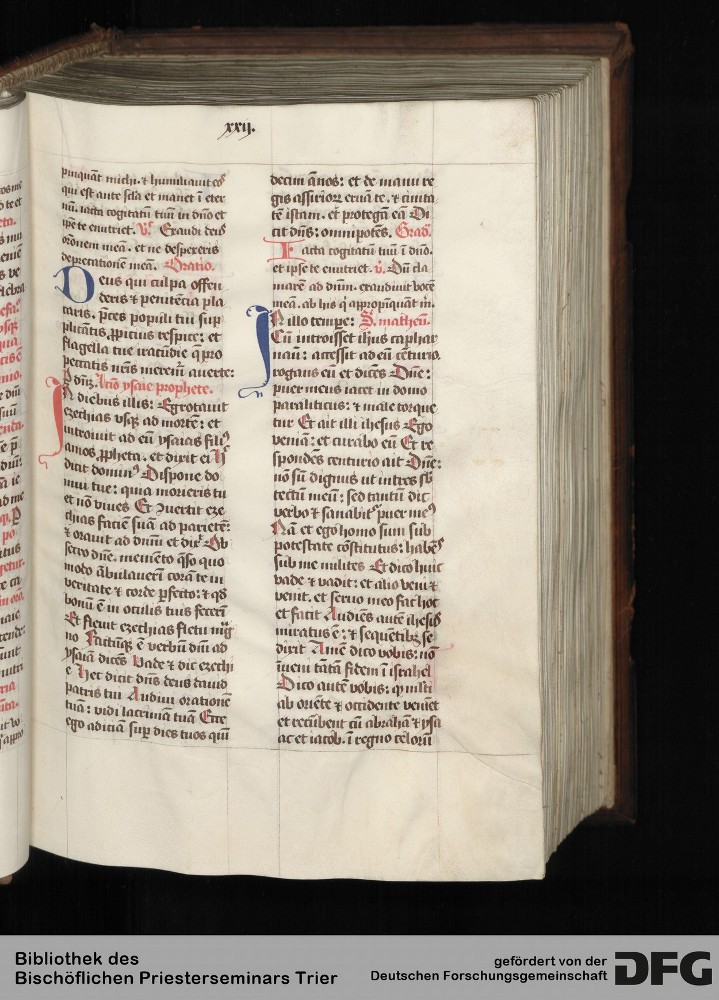 xxij.
pinquāt michi. ⁊ humiliauit eos
qui est ante scla et manet ī eter
nū. iacta cogitatū tuū in dn̄o et
ip̄e te enutriet. V᷒ Exaudi deus
or̄onem meā. et ne despexeris
deprecationē meā. Oratio.
Deus qui culpa offen
deris ⁊ penitēcia pla
caris. p̄ces populi tui sup
plicātis ꝓpicius respice: et
flagella tue iracūdie q̄ pro
peccatis nr̄is meremr̄ auerte:
P dn̄ꝫ. Lc̄io ysaie prophete.
In diebus illis: Egrotauit
ezechias usqꝫ ad mortē: et
introiuit ad eū ysaias filiꝰ
amos ꝓpheta. et dixit ei H̄
dicit dominꝰ Dispone do
mui tue: quia morieris tu
et nō viues Et ꝯuertit eze
chias faciē suā ad parietē:
⁊ orauit ad dn̄m et dix͛ Ob
secro dn̄e. memēto q̄so quo
modo ābulauerī corā te in
veritate ⁊ corde ꝑfecto: ⁊ qd̄
bonū ē in oculis tuis fecerī
Et fleuit ezechias fletu mḡ
no Factūqꝫ ē verbū dn̄i ad
ysaiā dicēs Vade ⁊ dic ezechi
e Hec dicit dn̄s deus dauid
patris tui Audiui orationē
tuā: vidi lacrimā tuā Ecce
ego adiciā suꝑ dies tuos quī
decim ānos: et de manu re
gis assirioꝝ eruā te. ⁊ ciuita
tē istam. et protegā eā Di
cit dn̄s: omnipotēs. Grad᷒.
Iacta cogitatū tuū ī dn̄o.
et ipse te enutriet. v᷒. Dū cla
marē ad dn̄m. exaudiuit vocē
meā. ab his q̄ appropīquāt m̄.
In illo tempe: S. matheū.
Cū introisset ih̄us caphar
naū: accessit ad eū cēturio.
rogans eū et dicēs Dn̄e:
puer meus iacet in domo
paraliticus: ⁊ male torque
tur Et ait illi ihesus Ego
veniā: et curabo eū Et re
spondēs centurio ait Dn̄e:
nō sū dignus ut intres sb̄
tectū meū: sed tantū dic
verbo ⁊ sanabitᷣ puer meꝰ
Nā et ego homo sum sub
potestate cōstitutus: habēs
sub me milites Et dico huic
vade ⁊ vadit: et alio veni ⁊
venit. et seruo meo fac hoc
et facit Audiēs autē ihesus
miratus ē: ⁊ sequētibꝫ se
dixit Amē dico vobis: nō
īueni tātā fidem ī israhel
Dico autē vobis: qꝫ mlti
ab oriēte ⁊ occidente veniēt
et recūbent cū abrahā ⁊ ysa
ac et iacob. ī regno celorū
Bibliothek des
Bischöflichen Priesterseminars Trier
gefördert von der
Deutschen Forschungsgemeinschaft
DFG